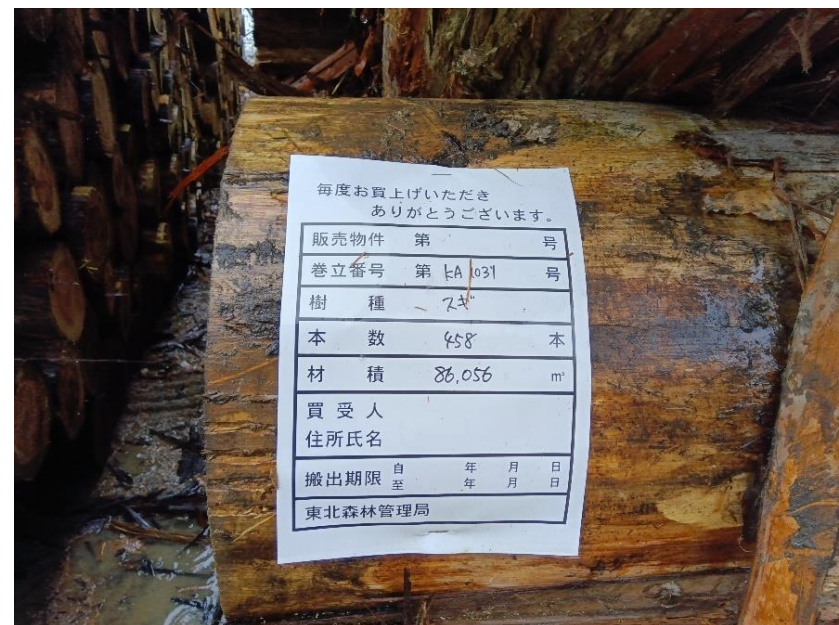 毎度お買上げいただき
ありがとうございます。
販売物件 第 号
巻立番号 第 KA1037 号
樹種 スギ
本数 458 本
材積 86,056 m³
買受人
住所氏名
搬出期限 自 年 月 日
至 年 月 日
東北森林管理局